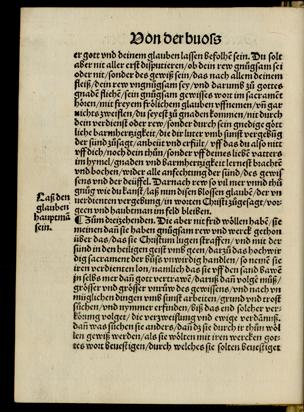 Von der buosz
er gott vnd deinem glauben lassen befolhen sein. Du solt
aber nit aller erst disputieren/ ob dein rew gnügsam sei
oder nit/ sonder des gewiß sein/ das nach allem deinem
fleiß/ dein rew vngnügsam sey/ vnd darumb zü gottes
gnaden fliehen/ sein gewisses wort im sacrament
hören/ mit freyem frölichem glauben vffnemen/ vñ gar
nichts zweiflen/ du seyest zü gnaden kommen/ nit durch
dein verdienst oder rew/ sonder durch sein gnedige gött
liche barmhertzigkeit/ die dir luter vmb sunst vergebüg
der sünd zůsagt/ anbeüt vnd erfült/ vff das du also nitt
vff dich/ noch dein thůn/ sonder vff deines liebē vatters
im hymel/ gnaden vnd barmhertzigkeit lernest bracht
vnd bochen/ wider alle anfechtung der sünd/ des gewis
sens vnd der teüffel. Darnach rew so vil mer vnd thů
gnůg wie du kanst/ laß nun disen blossen glaubē/ der vn
uerdienten vergebung/ in worten Christi zůgesagt/ vor
geen vnd hauptman im feld bleiben.
Laß den
glauben
hauptmā
sein.
¶ Zům dreizehenden. Die aber nit frid wöllen habē/ sie
meinen dañ sie haben gnügsam rew vnd werck gethon
über das/ das sie Christum lugen straffen/ vnd mit der
sünd in den heiligen geist vmb geen/ darzů das hochwir
dig sacrament der bůß vnwirdig handlen/ so nemē sie
iren verdienten lon/ namlich das sie vff den sand bawē
in selbs mer dañ gott vertrawē/ daruß dañ volgē můß/
grösser vnd grösser vnrůw des gewissens/ vnd nach vn
müglichen dingen vmb sunst arbeiten/ grund vnd trost
sůchen/ vnd nymmer erfinden/ biß das end solcher ver-
körung volget/ die verzweiflung vnd ewige verdānüß.
dañ was sůchen sie anders/ dañ dz sie durch ir thůn wöl
len gewiß werden/ als sie wölten mit iren wercken got-
tes wort beuestigen/ durch welches sie solten beuestiget